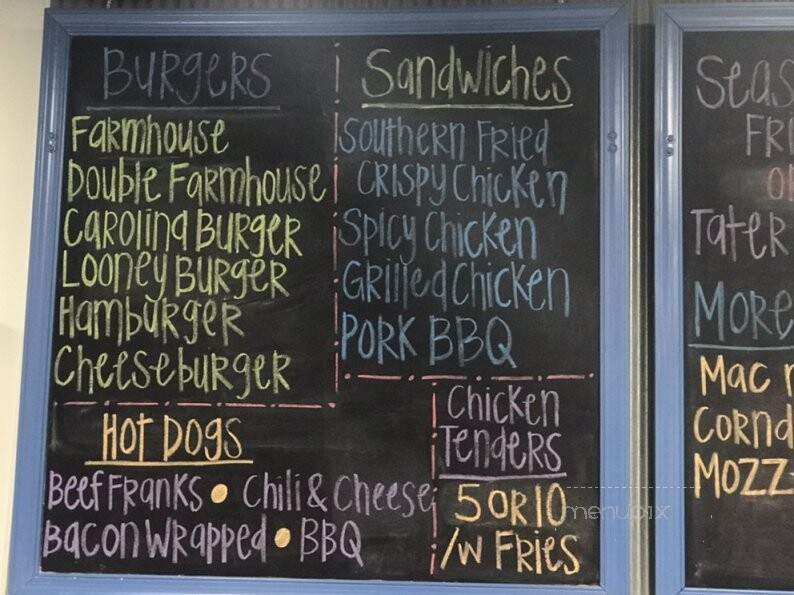 Burgers
Farmhouse
Double Farmhouse
Carolina Burger
Looney Burger
Hamburger
Cheeseburger
Sandwiches
Southern Fried
Crispy Chicken
Spicy Chicken
Grilled Chicken
PORK BBQ
Hot Dogs
Beef Franks • Chili & Cheese
Bacon Wrapped • BBQ
Chicken
Tenders
5 OR 10
/w Fries
Seas
FRI
Tater
More
Mac
Cornd
Mozz
menupix